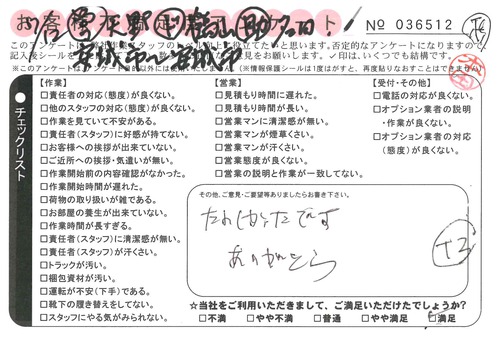 No 036512
このアンケートは
スタッフの
立てたいと思います。否定的なアンケートになりますので、
記入後シールを
意見をお願いします。✓印は、いくつでも結構です。
【作業】
□責任者の対応(態度)が良くない。
□他のスタッフの対応(態度)が良くない。
□作業を見ていて不安がある。
□責任者(スタッフ)に好感が持てない。
□お客様への挨拶が出来ていない。
□ご近所への挨拶・気遣いが無い。
□作業開始前の内容確認がなかった。
□作業開始時間が遅れた。
□荷物の取り扱いが雑である。
□お部屋の養生が出来ていない。
□作業時間が長すぎる。
□責任者(スタッフ)に清潔感が無い。
□責任者(スタッフ)が汗くさい。
□トラックが汚い。
□梱包資材が汚い。
□運転が不安(下手)である。
□靴下の履き替えをしてない。
□スタッフにやる気がみられない。
【営業】
□見積もり時間に遅れた。
□見積もり時間が長い。
□営業マンに清潔感が無い。
□営業マンが煙草くさい。
□営業マンが汗くさい。
□営業態度が良くない。
□営業の説明と作業が一致してない。
【受付・その他】
□電話の対応が良くない。
□オプション業者の説明・作業が良くない。
□オプション業者の対応(態度)が良くない。
チェックリスト
その他、ご意見・ご要望等ありましたらお書き下さい。
たすかったです
ありがとう
☆当社をご利用いただきまして、ご満足いただけたでしょうか?
□不満 □やや不満 □普通 □やや満足 □満足